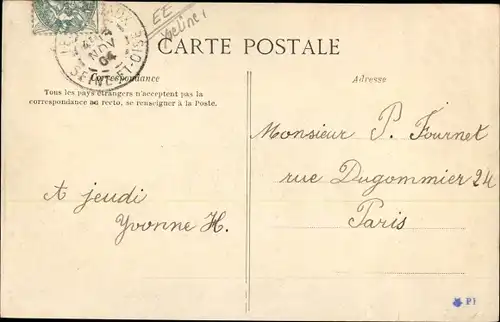 EE
CARTE POSTALE
NOV
04
SEINE-ET-OISE
Correspondance
Tous les pays étrangers n'acceptent pas la
correspondance au recto, se renseigner à la Poste.
A jeudi
Yvonne H.
Adresse
Monsieur P. Fournet
rue Dugommier 24
Paris